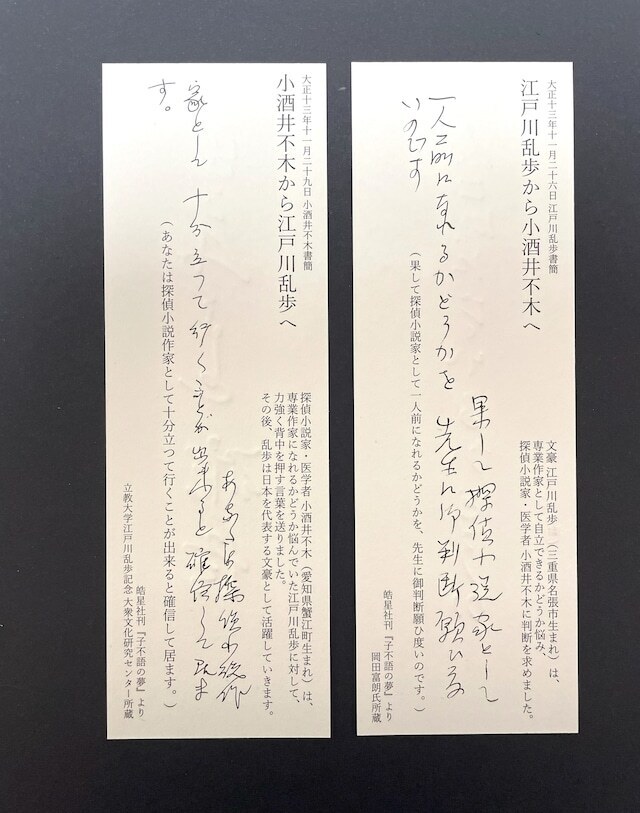 大正十三年十一月二十六日 江戸川乱歩書簡
江戸川乱歩から小酒井不木へ
文豪 江戸川乱歩 (三重県名張市生まれ)は、
専業作家として自立できるかどうか悩み、
探偵小説家・医学者 小酒井不木に判断を求めました。
果して探偵小説家として
一人前になれるかどうかを 先生に御判断願ひ度
いのです
(果して探偵小説家として一人前になれるかどうかを、先生に御判断願ひ度いのです。)
皓星社刊『子不語の夢』より
岡田富朗氏所蔵
大正十三年十一月二十九日 小酒井不木書簡
小酒井不木から江戸川乱歩へ
探偵小説家・医学者 小酒井不木(愛知県蟹江町生まれ)は、
専業作家になれるかどうか悩んでいた江戸川乱歩に対して、
力強く背中を押す言葉を送りました。
その後、乱歩は日本を代表する文豪として活躍していきます。
あなたは探偵小説作
家として 十分立つて行くことが出来ると確信して居ま
す。
(あなたは探偵小説作家として十分立つて行くことが出来ると確信して居ます。)
皓星社刊『子不語の夢』より、
立教大学江戸川乱歩記念 大衆文化研究センター所蔵